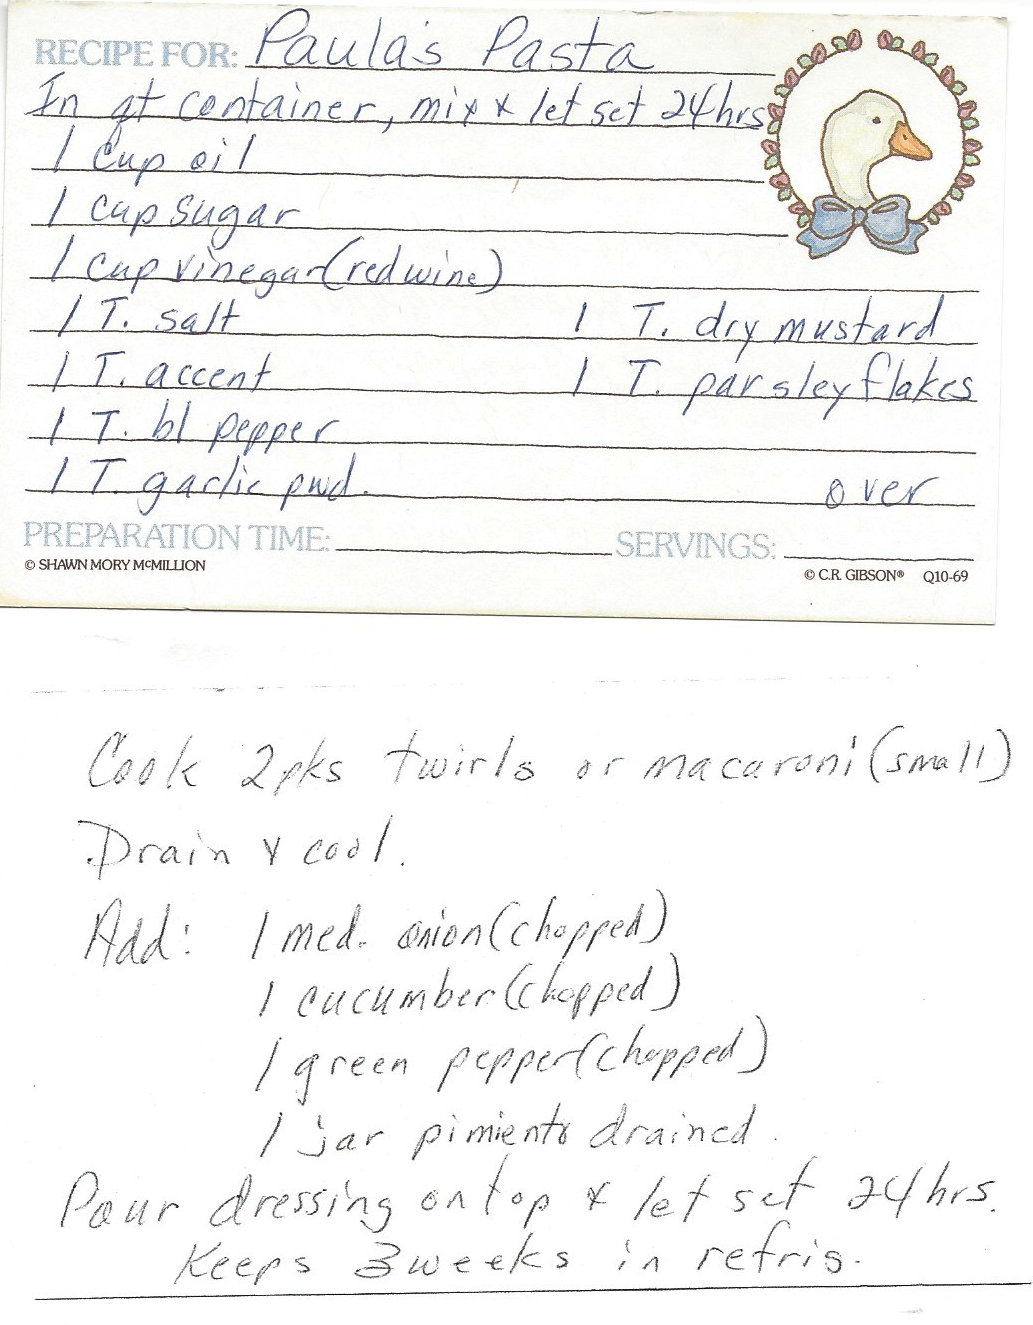 RECIPE FOR: Paula's Pasta
In qt container, mix & let set 24 hrs
1 cup oil
1 cup sugar
1 cup vinegar (red wine)
1 T. salt 1 T. dry mustard
1 T. accent 1 T. parsley flakes
1 T. bl pepper
1 T. garlic pwd. over
PREPARATION TIME: SERVINGS:
© SHAWN MORY McMILLION © C.R. GIBSON® Q10-69
Cook 2 pks twirls or macaroni (small)
Drain & cool.
Add: 1 med. onion (chopped)
1 cucumber (chopped)
1 green pepper (chopped)
1 jar pimiento drained
Pour dressing on top & let set 24 hrs.
Keeps 3 weeks in refrig.